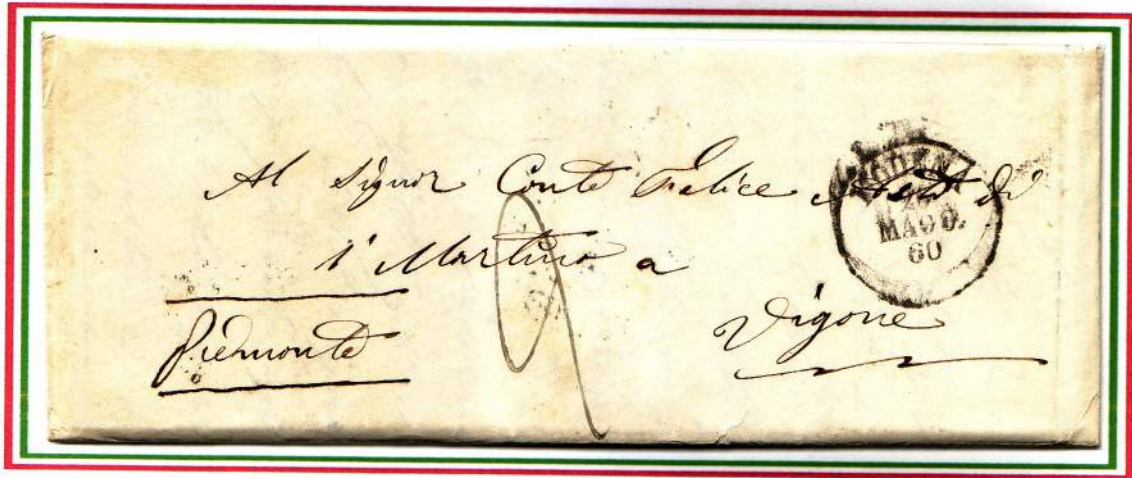 Al Signor Conte Felice di
S Martino a
Vigone
Piemonte
MODENA
MAGG.
60